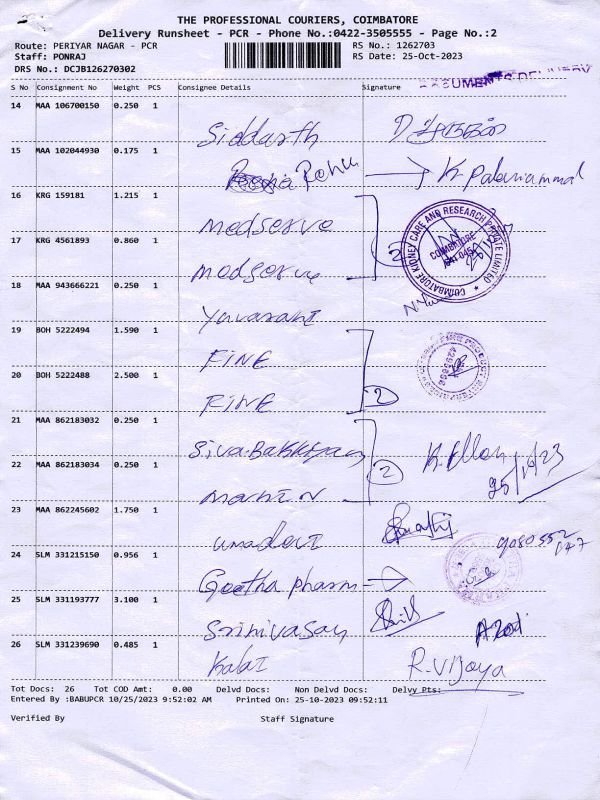 THE PROFESSIONAL COURIERS, COIMBATORE
Delivery Runsheet - PCR - Phone No.:0422-3505555 - Page No.:2
Route: PERIYAR NAGAR - PCR RS No.: 1262703
Staff: PONRAJ RS Date: 25-Oct-2023
DRS No.: DCJB126270302
DOCUMENTS DELIVERY
S No Consignment No Weight PCS Consignee Details Signature
14 MAA 106700150 0.250 1
Siddarth
15 MAA 102044930 0.175 1
Rohu K Palaniammal
16 KRG 159181 1.215 1
medserve 2
COIMBATORE KIDNEY CARE AND RESEARCH PRIVATE LIMITED
COIMBATORE
17 KRG 4561893 0.860 1
medserve
18 MAA 943666221 0.250 1
Yuvarani
19 BOH 5222494 1.590 1
FINE
20 BOH 5222488 2.500 1
FINE 2
21 MAA 862183032 0.250 1
Siva.Bakkiyam 2
22 MAA 862183034 0.250 1
25/10/23
23 MAA 862245602 1.750 1
umadevi
24 SLM 331215150 0.956 1
Geetha pharm
25 SLM 331193777 3.100 1
Srinivasan
26 SLM 331239690 0.485 1
Kalai R.Vijaya
Tot Docs: 26 Tot COD Amt: 0.00 Delvd Docs: Non Delvd Docs: Delvy Pts:
Entered By :BABUPCR 10/25/2023 9:52:02 AM Printed On: 25-10-2023 09:52:11
Verified By Staff Signature